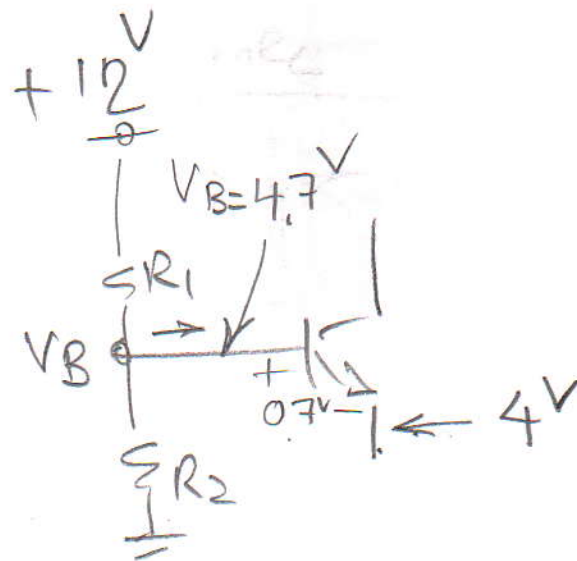 +12V
VB=4.7V
R1
VB
+
0.7V-
4V
R2